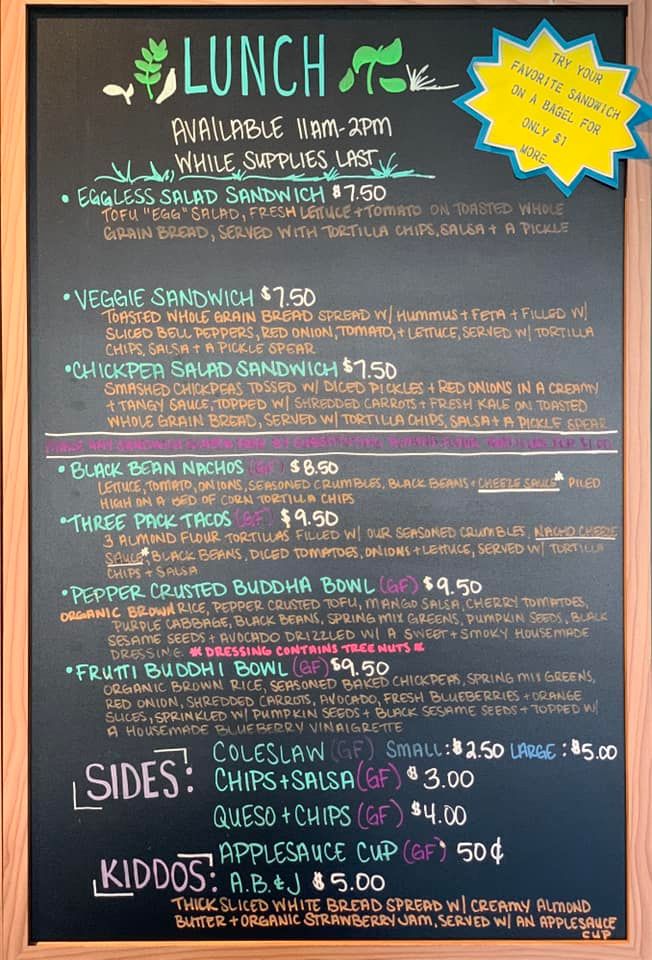 LUNCH
TRY YOUR
FAVORITE SANDWICH
ON A BAGEL FOR
ONLY $1
MORE
AVAILABLE 11AM-2PM
WHILE SUPPLIES LAST
• EGGLESS SALAD SANDWICH $7.50
TOFU "EGG" SALAD, FRESH LETTUCE + TOMATO ON TOASTED WHOLE
GRAIN BREAD, SERVED WITH TORTILLA CHIPS, SALSA + A PICKLE
• VEGGIE SANDWICH $7.50
TOASTED WHOLE GRAIN BREAD SPREAD W/ HUMMUS + FETA + FILLED W/
SLICED BELL PEPPERS, RED ONION, TOMATO, + LETTUCE, SERVED W/ TORTILLA
CHIPS, SALSA + A PICKLE SPEAR
• CHICKPEA SALAD SANDWICH $7.50
SMASHED CHICKPEAS TOSSED W/ DICED PICKLES + RED ONIONS IN A CREAMY
+ TANGY SAUCE, TOPPED W/ SHREDDED CARROTS + FRESH KALE ON TOASTED
WHOLE GRAIN BREAD, SERVED W/ TORTILLA CHIPS, SALSA + A PICKLE SPEAR
MAKE ANY SANDWICH GLUTEN FREE BY SUBSTITUTING ALMOND FLOUR TORTILLAS FOR $1.00
• BLACK BEAN NACHOS (GF) $8.50
LETTUCE, TOMATO, ONIONS, SEASONED CRUMBLES, BLACK BEANS + CHEEZE SAUCE* PILED
HIGH ON A BED OF CORN TORTILLA CHIPS
• THREE PACK TACOS (GF) $9.50
3 ALMOND FLOUR TORTILLAS FILLED W/ OUR SEASONED CRUMBLES, NACHO CHEEZE
SAUCE*, BLACK BEANS, DICED TOMATOES, ONIONS + LETTUCE, SERVED W/ TORTILLA
CHIPS + SALSA
• PEPPER CRUSTED BUDDHA BOWL (GF) $9.50
ORGANIC BROWN RICE, PEPPER CRUSTED TOFU, MANGO SALSA, CHERRY TOMATOES,
PURPLE CABBAGE, BLACK BEANS, SPRING MIX GREENS, PUMPKIN SEEDS, BLACK
SESAME SEEDS + AVOCADO DRIZZLED W/ A SWEET + SMOKY HOUSEMADE
DRESSING. * DRESSING CONTAINS TREE NUTS *
• FRUTTI BUDDHI BOWL (GF) $9.50
ORGANIC BROWN RICE, SEASONED BAKED CHICKPEAS, SPRING MIX GREENS,
RED ONION, SHREDDED CARROTS, AVOCADO, FRESH BLUEBERRIES + ORANGE
SLICES, SPRINKLED W/ PUMPKIN SEEDS + BLACK SESAME SEEDS + TOPPED W/
A HOUSEMADE BLUEBERRY VINAIGRETTE
SIDES:
COLESLAW (GF) SMALL: $2.50 LARGE: $5.00
CHIPS + SALSA (GF) $3.00
QUESO + CHIPS (GF) $4.00
APPLESAUCE CUP (GF) 50¢
KIDDOS: A.B. & J $5.00
THICK SLICED WHITE BREAD SPREAD W/ CREAMY ALMOND
BUTTER + ORGANIC STRAWBERRY JAM, SERVED W/ AN APPLESAUCE
CUP